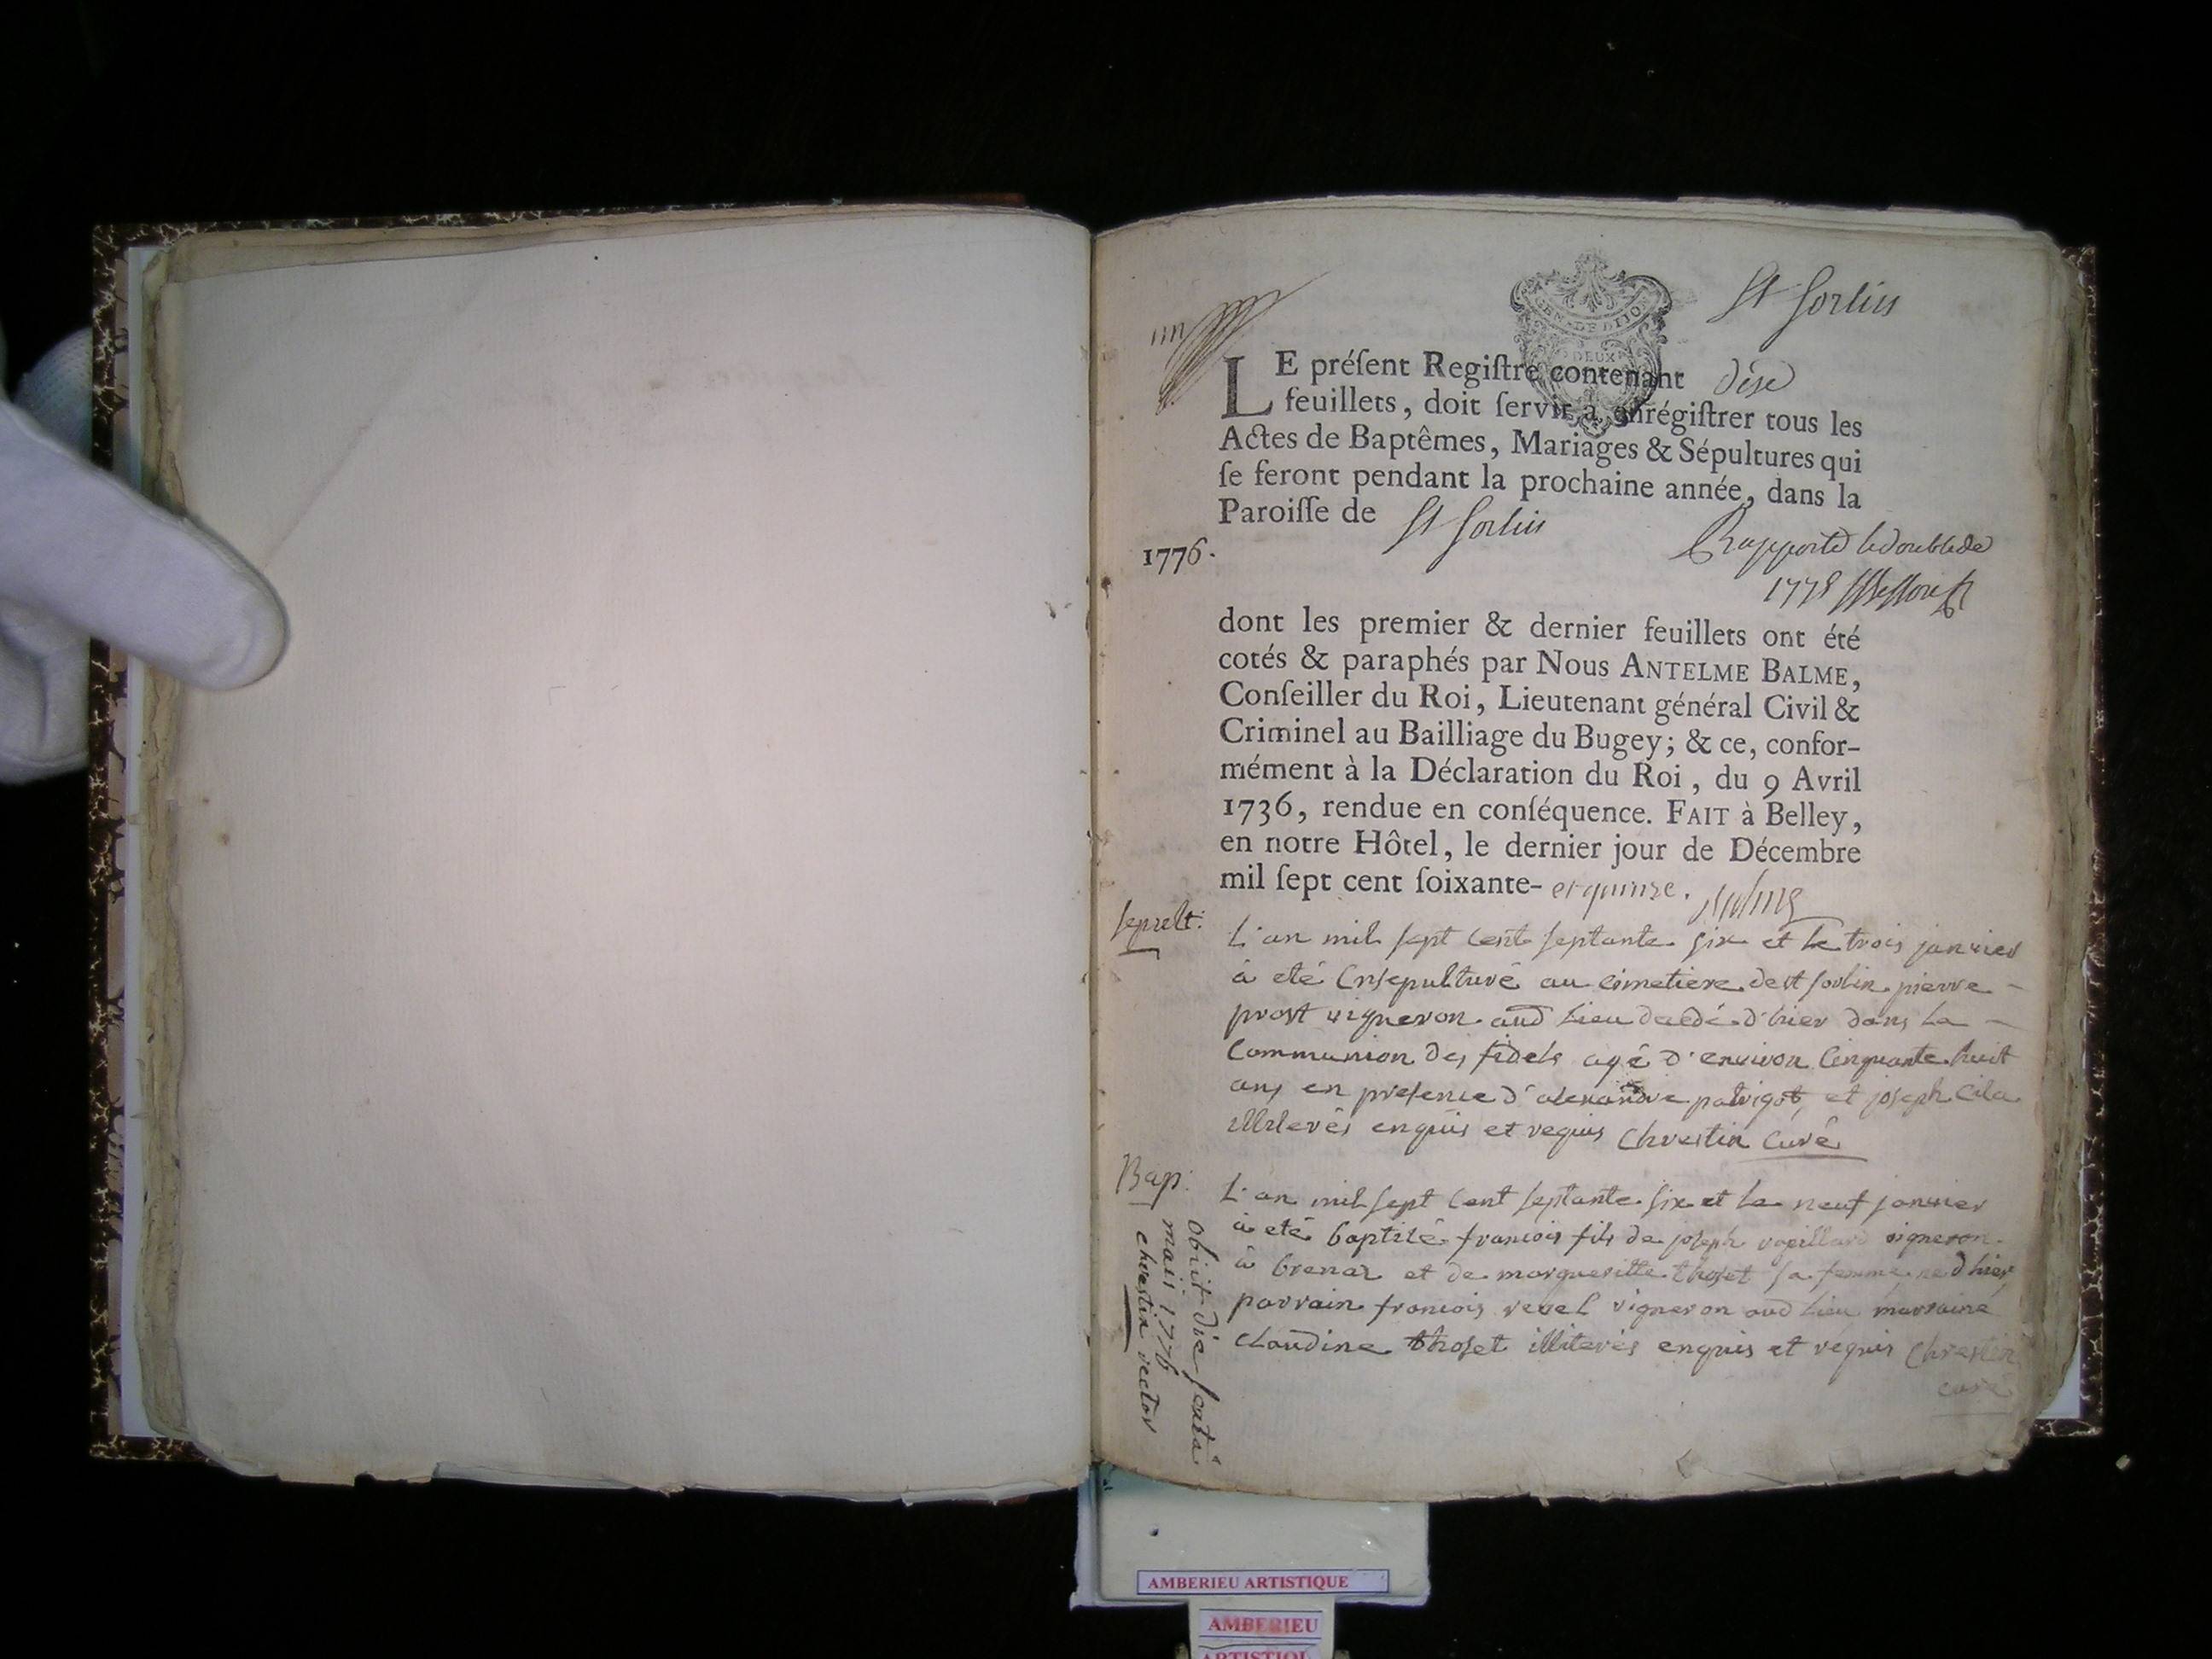 St Sorlin
un
GEN. DE DIJON
DEUX
LE préſent Regiſtre contenant dise
feuillets, doit ſervir a enrégiſtrer tous les
Actes de Baptêmes, Mariages & Sépultures qui
ſe feront pendant la prochaine année, dans la
Paroiſſe de St Sorlin
Rapporté le double de
1776.
1775
dont les premier & dernier feuillets ont été
cotés & paraphés par Nous ANTELME BALME,
Conſeiller du Roi, Lieutenant général Civil &
Criminel au Bailliage du Bugey; & ce, confor-
mément à la Déclaration du Roi, du 9 Avril
1736, rendue en conſéquence. FAIT à Belley,
en notre Hôtel, le dernier jour de Décembre
mil ſept cent ſoixante- et quinze. Balme
sepult:
L'an mil sept cent septante six et le trois janvier
à eté Ensepulturé au cimetiere de st sorlin pierre
prost vigneron aud lieu decedé d'hier dans la
Communion des fidels agé d'environ Cinquante huit
ans en presence d'alexandre patrigot, et joseph Cila
illiterés enquis et requis Chrestin Curé
Bap:
L'an mil sept cent septante six et le neuf janvier
à eté baptisé francois fils de joseph vaeillard vigneron
à brenaz et de margueritte thoset sa femme né d'hier
parrain francois revel vigneron aud lieu marraine
claudine thoset illiterés enquis et requis Chrestin
curé
obiit die sexta
maii 1776
chrestin rector
AMBERIEU ARTISTIQUE
AMBERIEU
ARTISTIQU